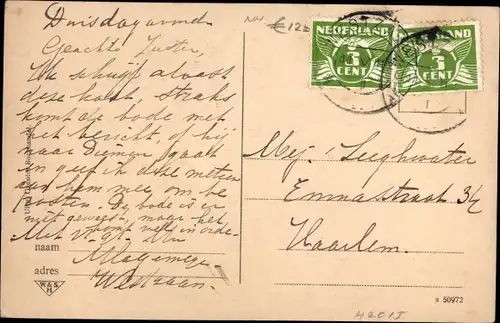 Dinsdagavond
NH € 12=
Geachte Zuster,
Ik schrijf alvast
deze kaart, straks
komt de bode met
het bericht, of hij
naar Diemen gaat
en geef ik deze meteen
aan hem mee, om te
posten. De bode is er
niet geweest, maar het
komt wel in orde.
Met v. gr.
Westzaan.
NEDERLAND
3
CENT
NEDERLAND
3
CENT
Mej. Leeghwater
Emmastraat
Haarlem.
naam
adres
W&S
H
s 50972
4201J